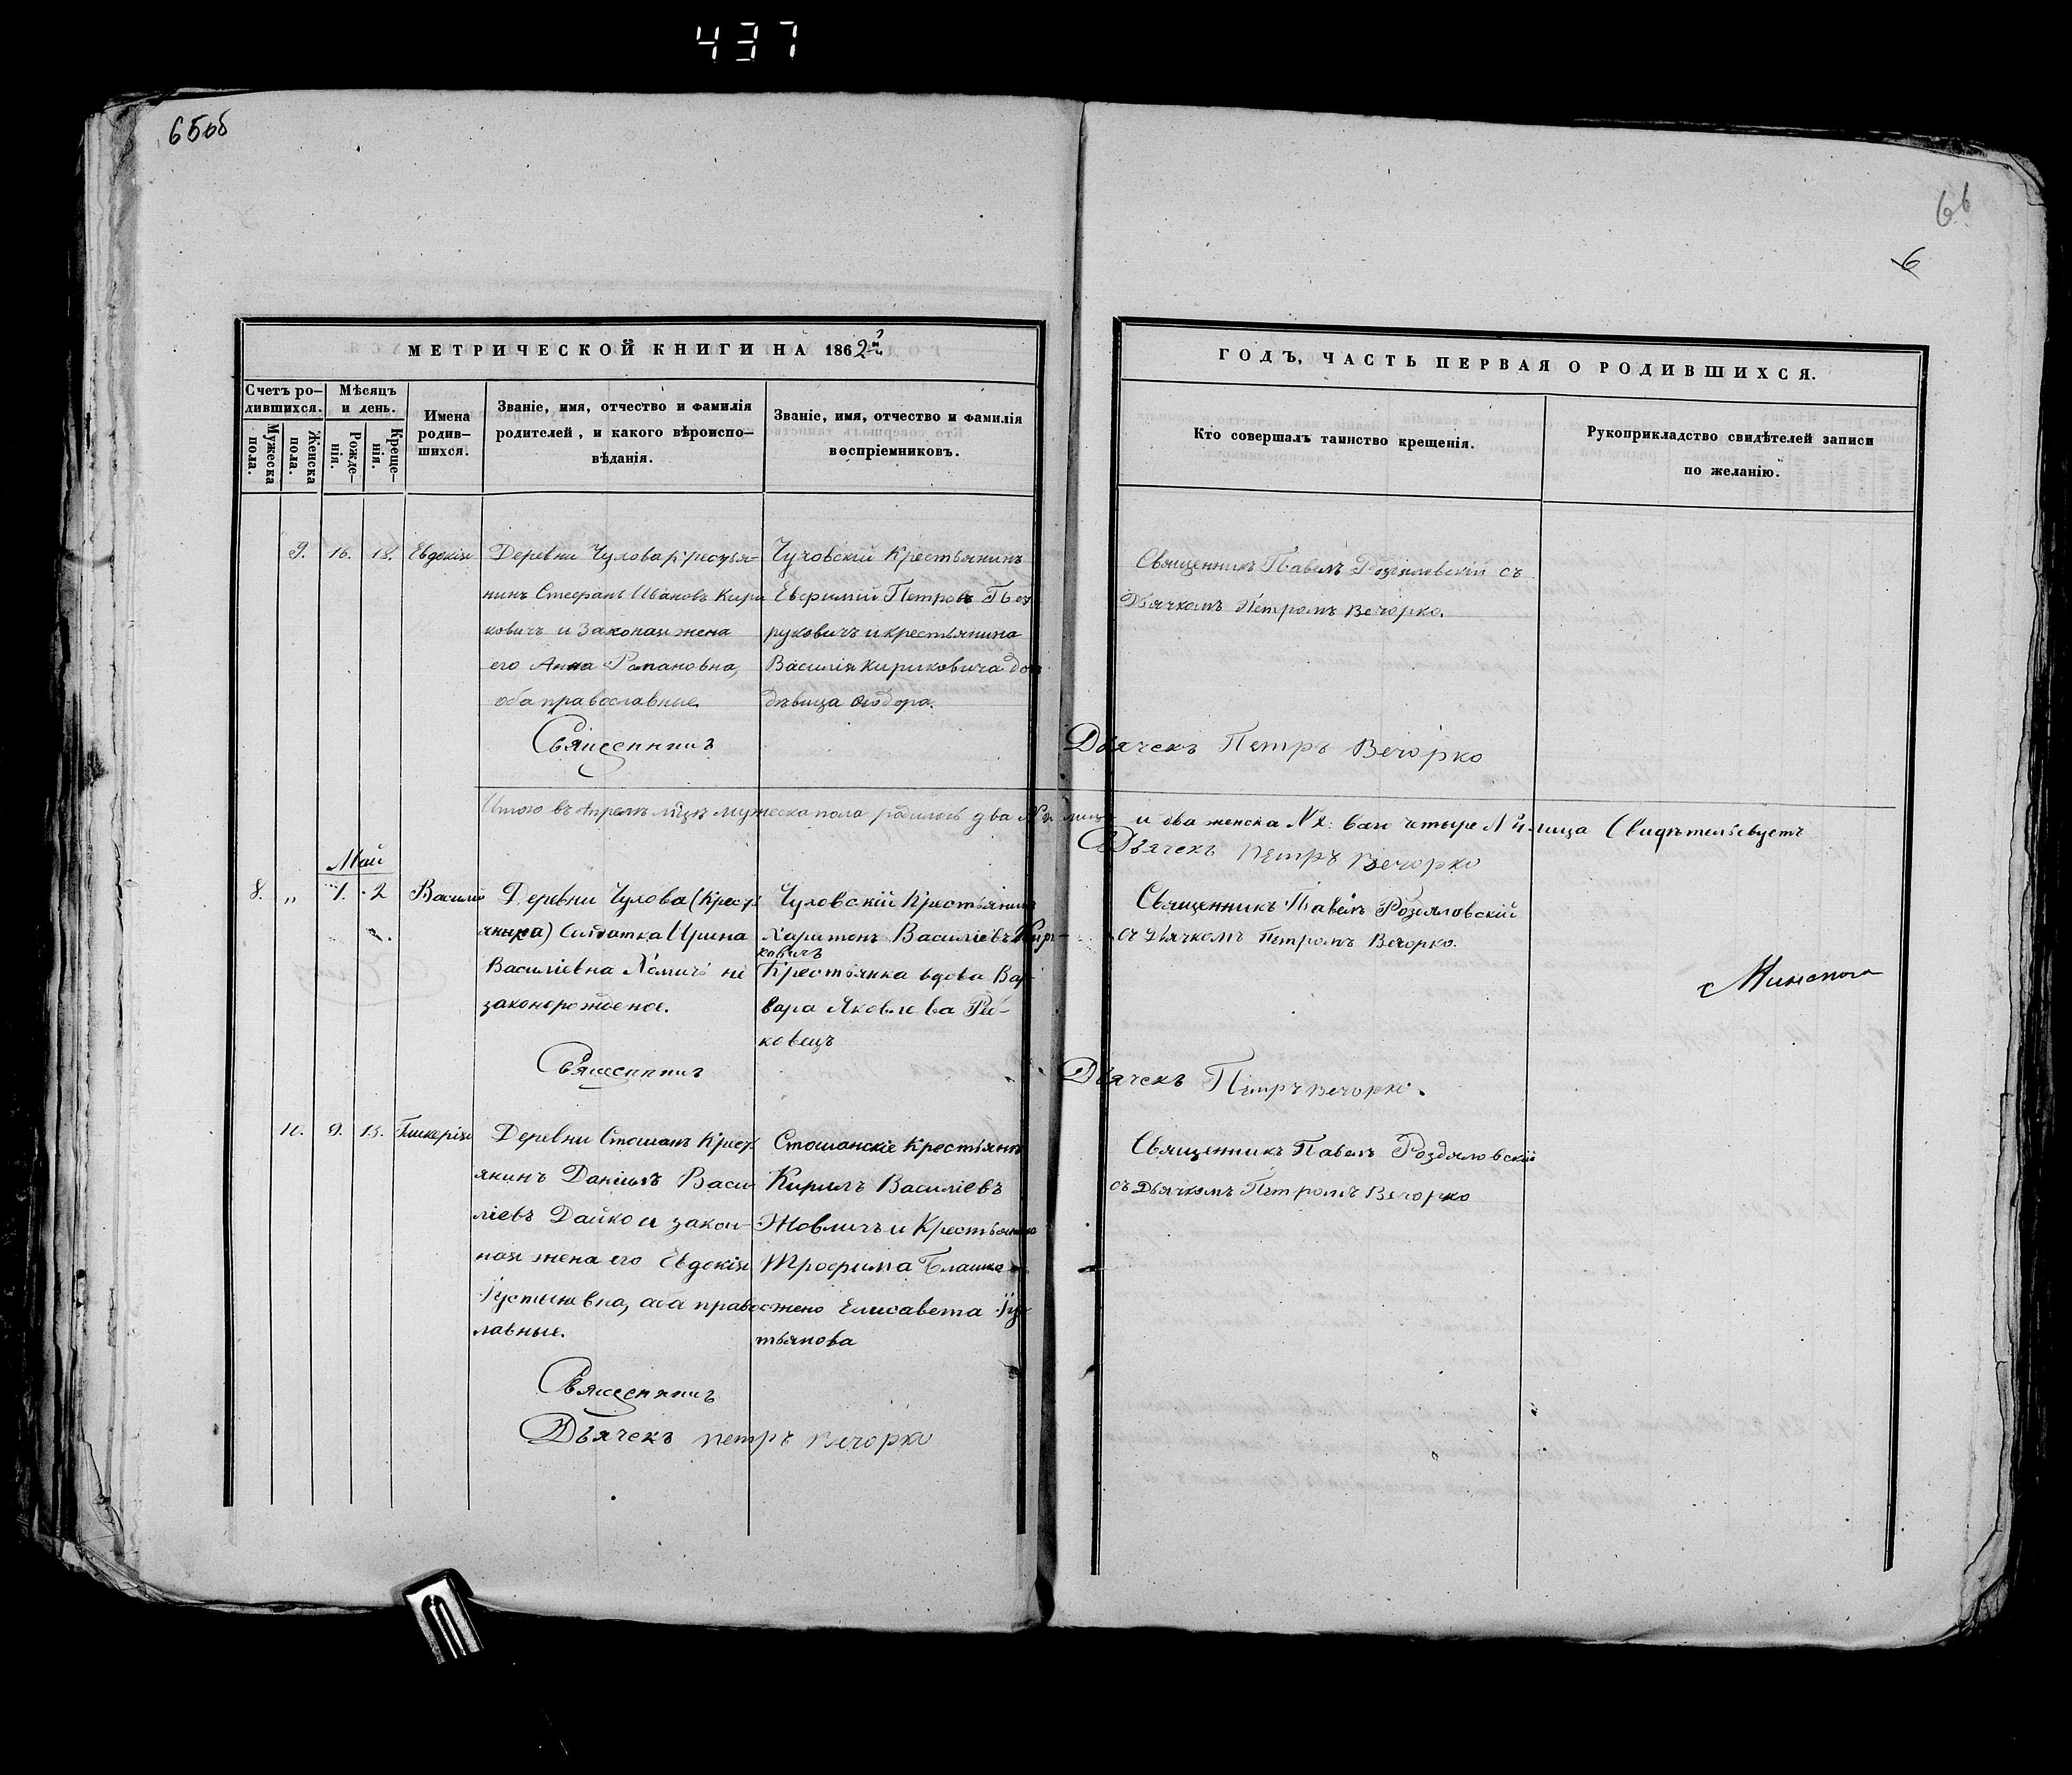 437
65об
66
6
МЕТРИЧЕСКОЙ КНИГИ НА 1862й
ГОДЪ, ЧАСТЬ ПЕРВАЯ О РОДИВШИХСЯ.
Счетъ ро-
дившихся.
Мужеска
пола.
Женска
пола.
Мѣсяцъ
и день.
Рожде-
нія.
Креще-
нія.
Имена
родив-
шихся.
Званіе, имя, отчество и фамилія
родителей, и какого вѣроиспо-
вѣданія.
Званіе, имя, отчество и фамилія
воспріемниковъ.
Кто совершалъ таинство крещенія.
Рукоприкладство свидѣтелей записи
по желанію.
9. 16. 18. Евдокія
Деревни Чулова Крестья-
нинъ Стефанъ Ивановъ Кири
ковичъ и Законая жена
его Анна Романовна,
оба православные.
Чуловскій Крестьянинъ
Евфимій Петровъ
руковичъ и крестьянина
Василія Кириковича
дѣвица Өеодора.
Священникъ Павелъ Роздяловскій съ
Дьячкомъ Петромъ Вечорко.
Священникъ
Дьячекъ Петръ Вечорко
Итого въ Апрелѣ мцѣ мужеска пола родилось два и два женска № 2. четыре № 4. лица Свидѣтельсвуетъ
Дьячекъ Петръ Вечорко
Май
8. „ 1. 2 Василій
Деревни Чулова (Крест
янка) Солдатка Ирина
Василіевна Хомичъ не
законорожденое.
Чуловскій Крестьянинъ
Харитонъ Василіевъ Кири-
ковичъ
Крестьянка вдова Вар-
вара Яковлева
ковецъ
Священникъ Павелъ Роздяловскій
съ Дьячкомъ Петромъ Вечорко.
Священникъ
Дьячекъ Петръ Вечорко.
10. 9. 13. Гликерія
Деревни Стошанъ Крест
янинъ Даніилъ Васи
ліевъ Дайко и закон-
ная жена его Евдокія
Іустиновна, оба правос
лавные.
Стошанскіе Крестьяне
Кирилъ Василіевъ
Жовличъ и Крестьянина
Трофима
жено Елисавета Іус
тьянова
Священникъ Павелъ Роздяловскій
съ Дьячкомъ Петромъ Вечорко
Священникъ
Дьячекъ Петръ Вечорко